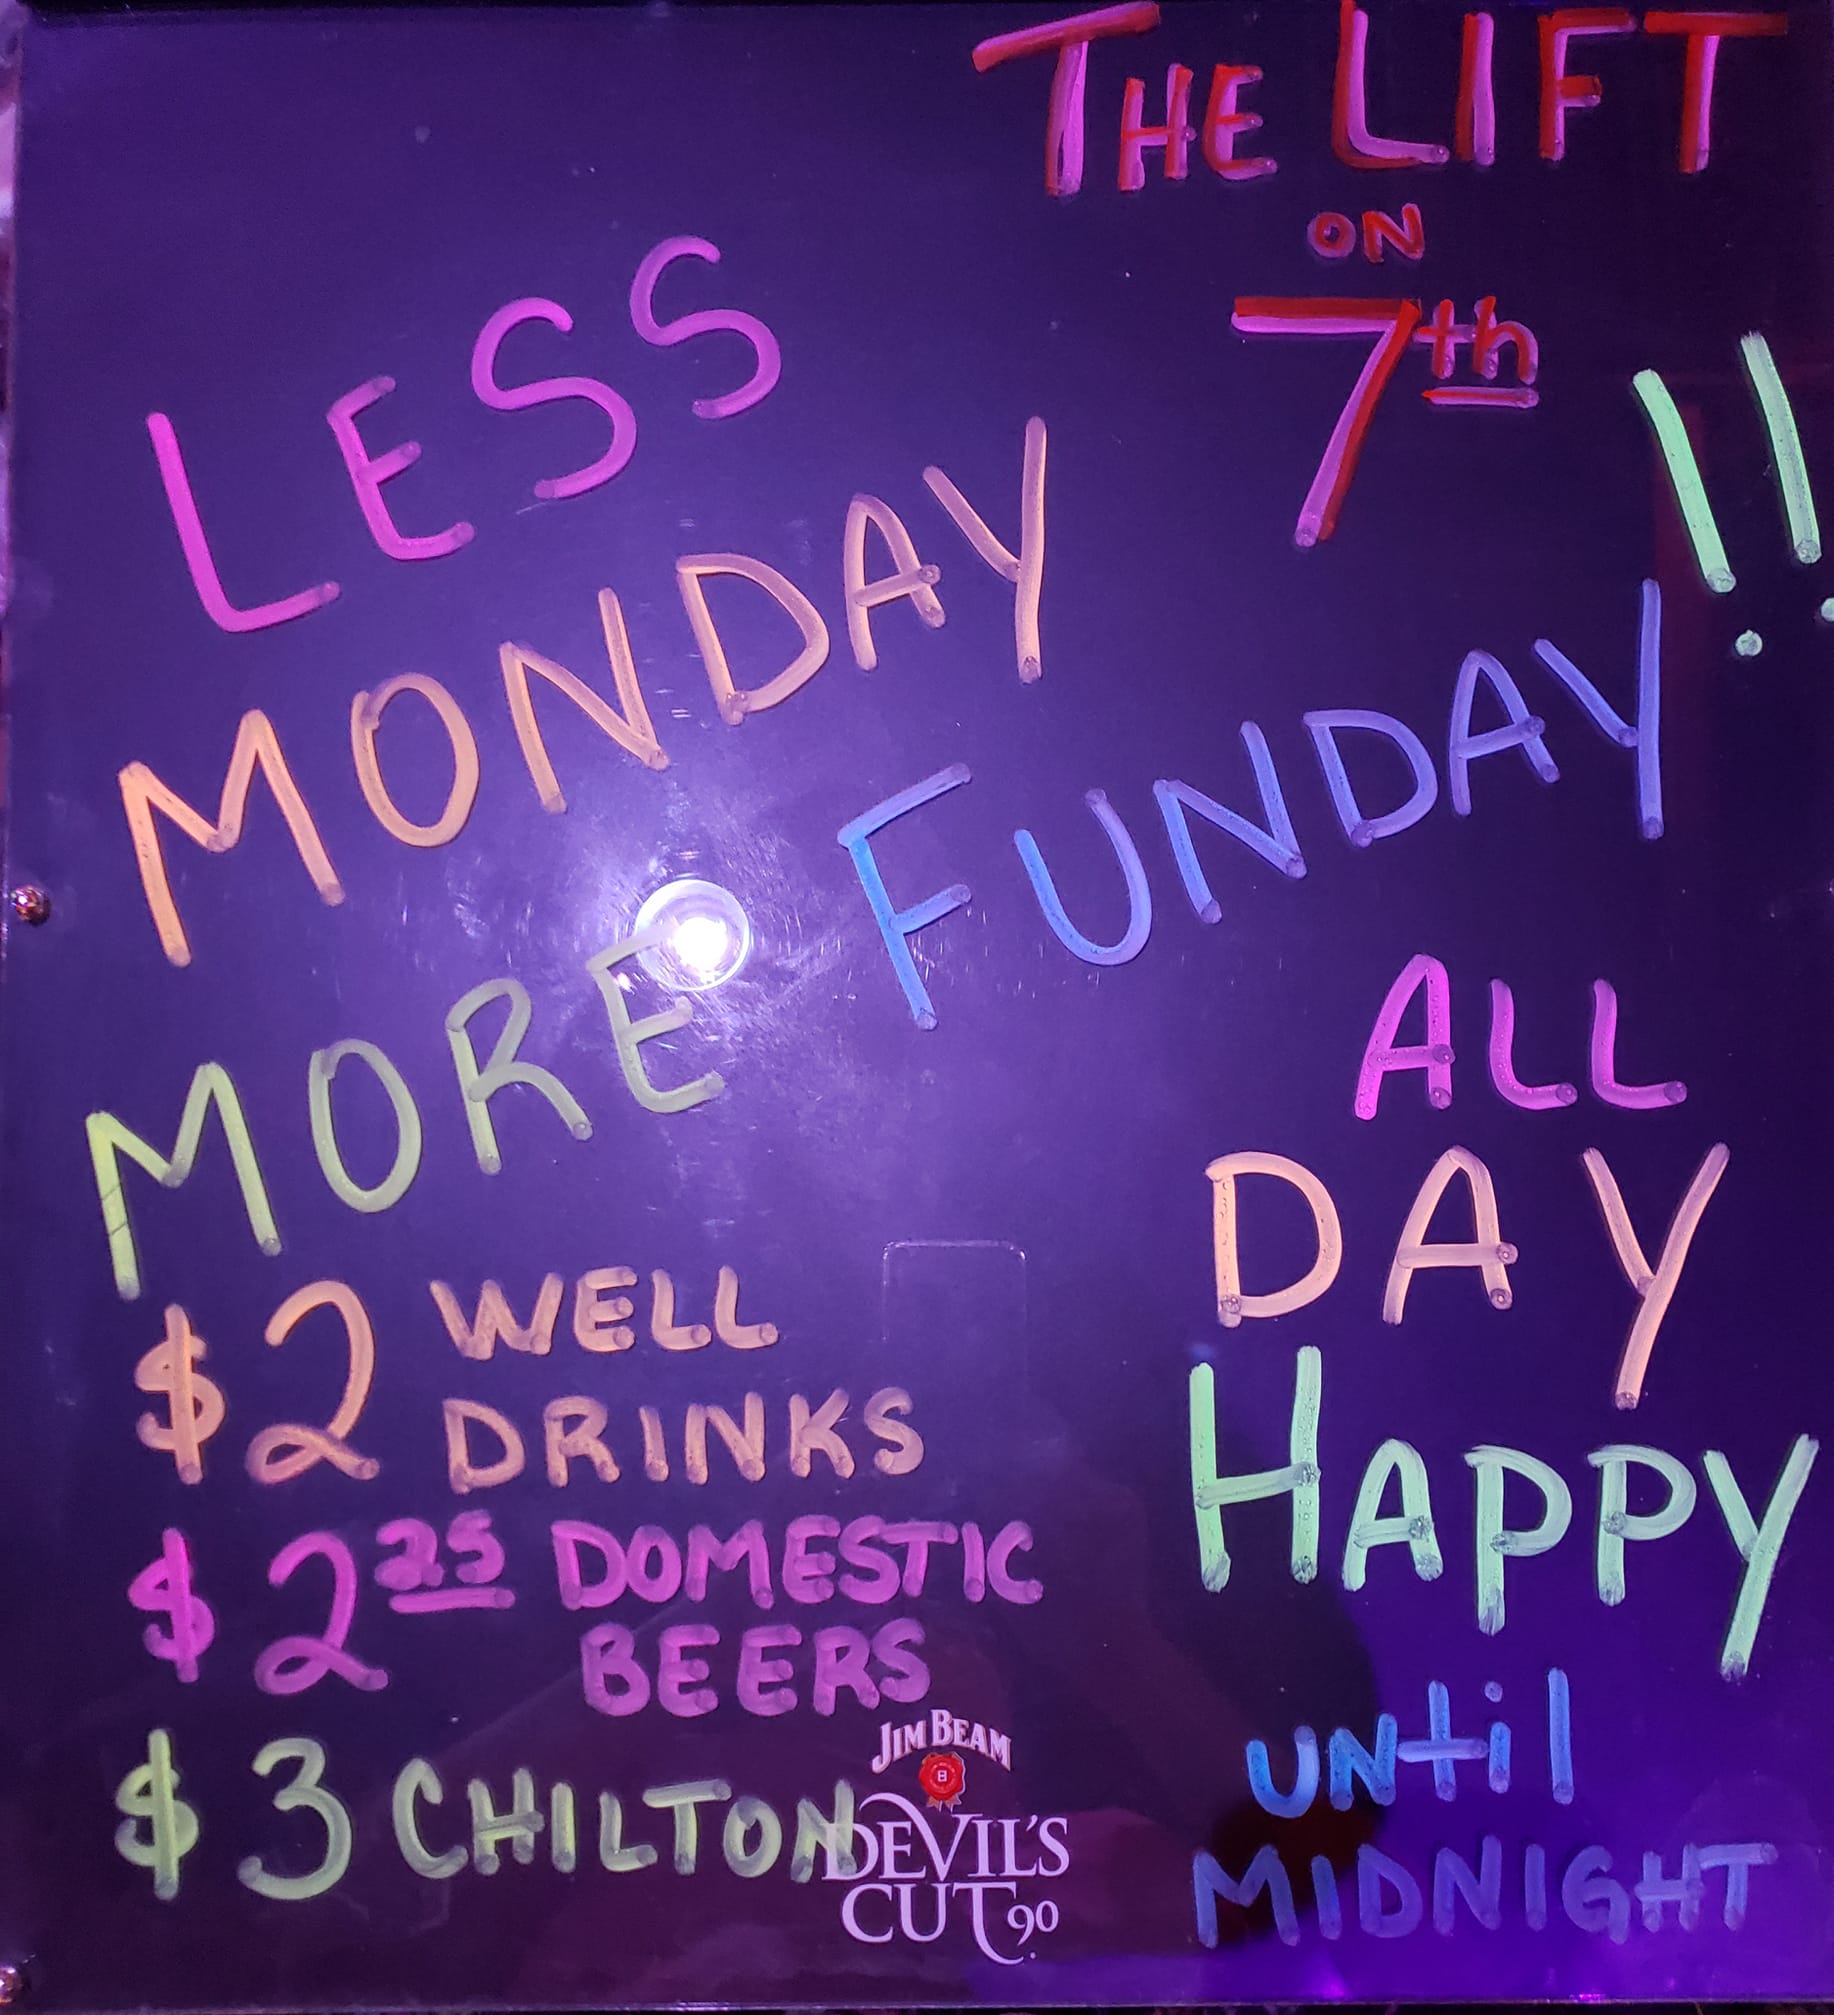 THE LIFT
ON
7th
LESS
MONDAY
MORE FUNDAY!!
$2 WELL
DRINKS
$2 25 DOMESTIC
BEERS
$3 CHILTON
ALL
DAY
HAPPY
until
MIDNIGHT
JIM BEAM
B
DEVIL'S
CUT 90